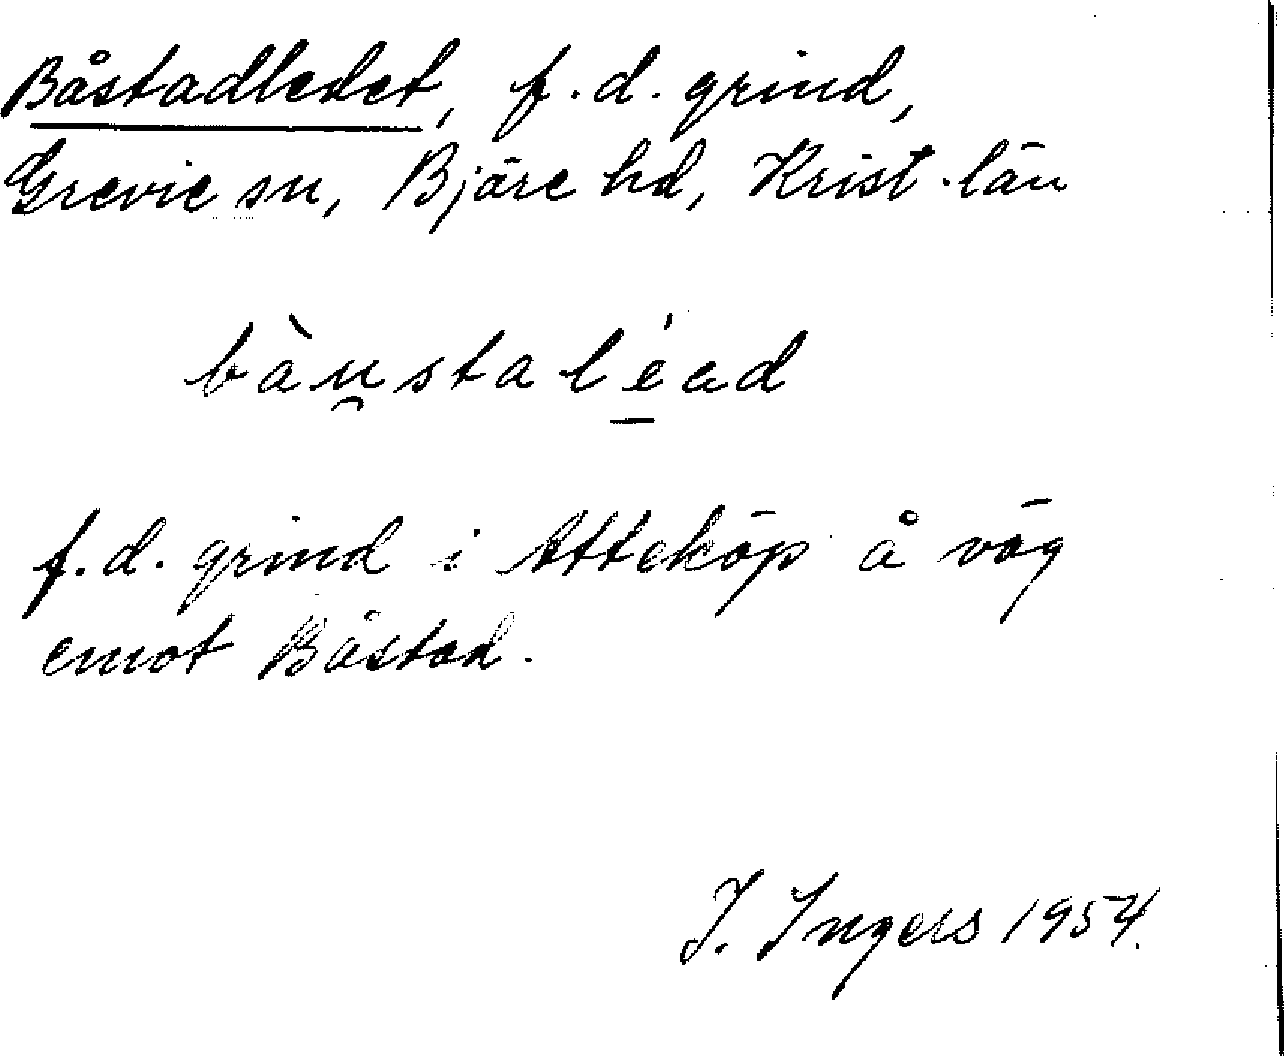 Båstadledet, f.d. grind,
Grevie sn, Bjäre hd, Krist. län
bàu̯stalé̠ad
f.d. grind i Atteköp å väg
emot Båstad.
I. Ingers 1954.